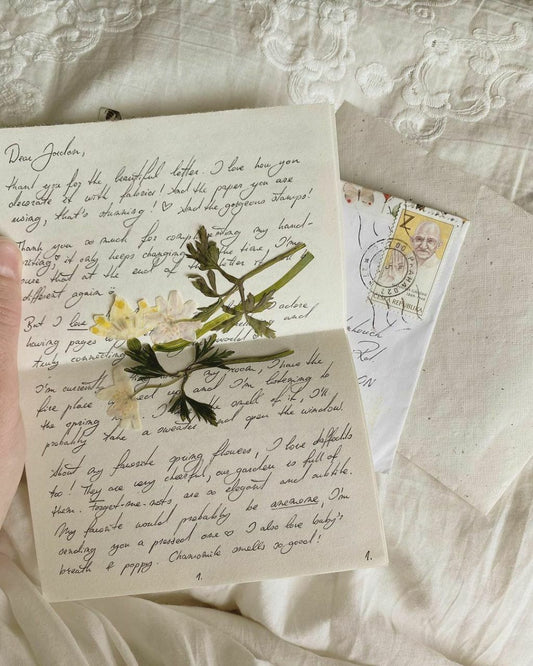 Dear Jordan,
thank you for the beautiful letter. I love how you
decorate it with fabrics! And the paper you are
using, that's stunning! ♡ And the gorgeous stamps!
Thank you so much for complimenting my hand-
writing, it only keeps changing the time, I'm
sure that at the end of the letter it
different again
But I love adore
having pages and
truly connecting world
I'm currently my room, I have the
fire place and I'm listening to
the spring the smell of it, I'll
probably take a sweater and open the window.
About my favorite spring flowers, I love daffodils
too! They are very cheerful, our garden is full of
them. Forget-me-nots are so elegant and subtle.
My favorite would probably be anemone, I'm
sending you a pressed one ♡ I also love baby's
breath & poppy. Chamomile smells so good!
1.
1.
REPUBLIKA